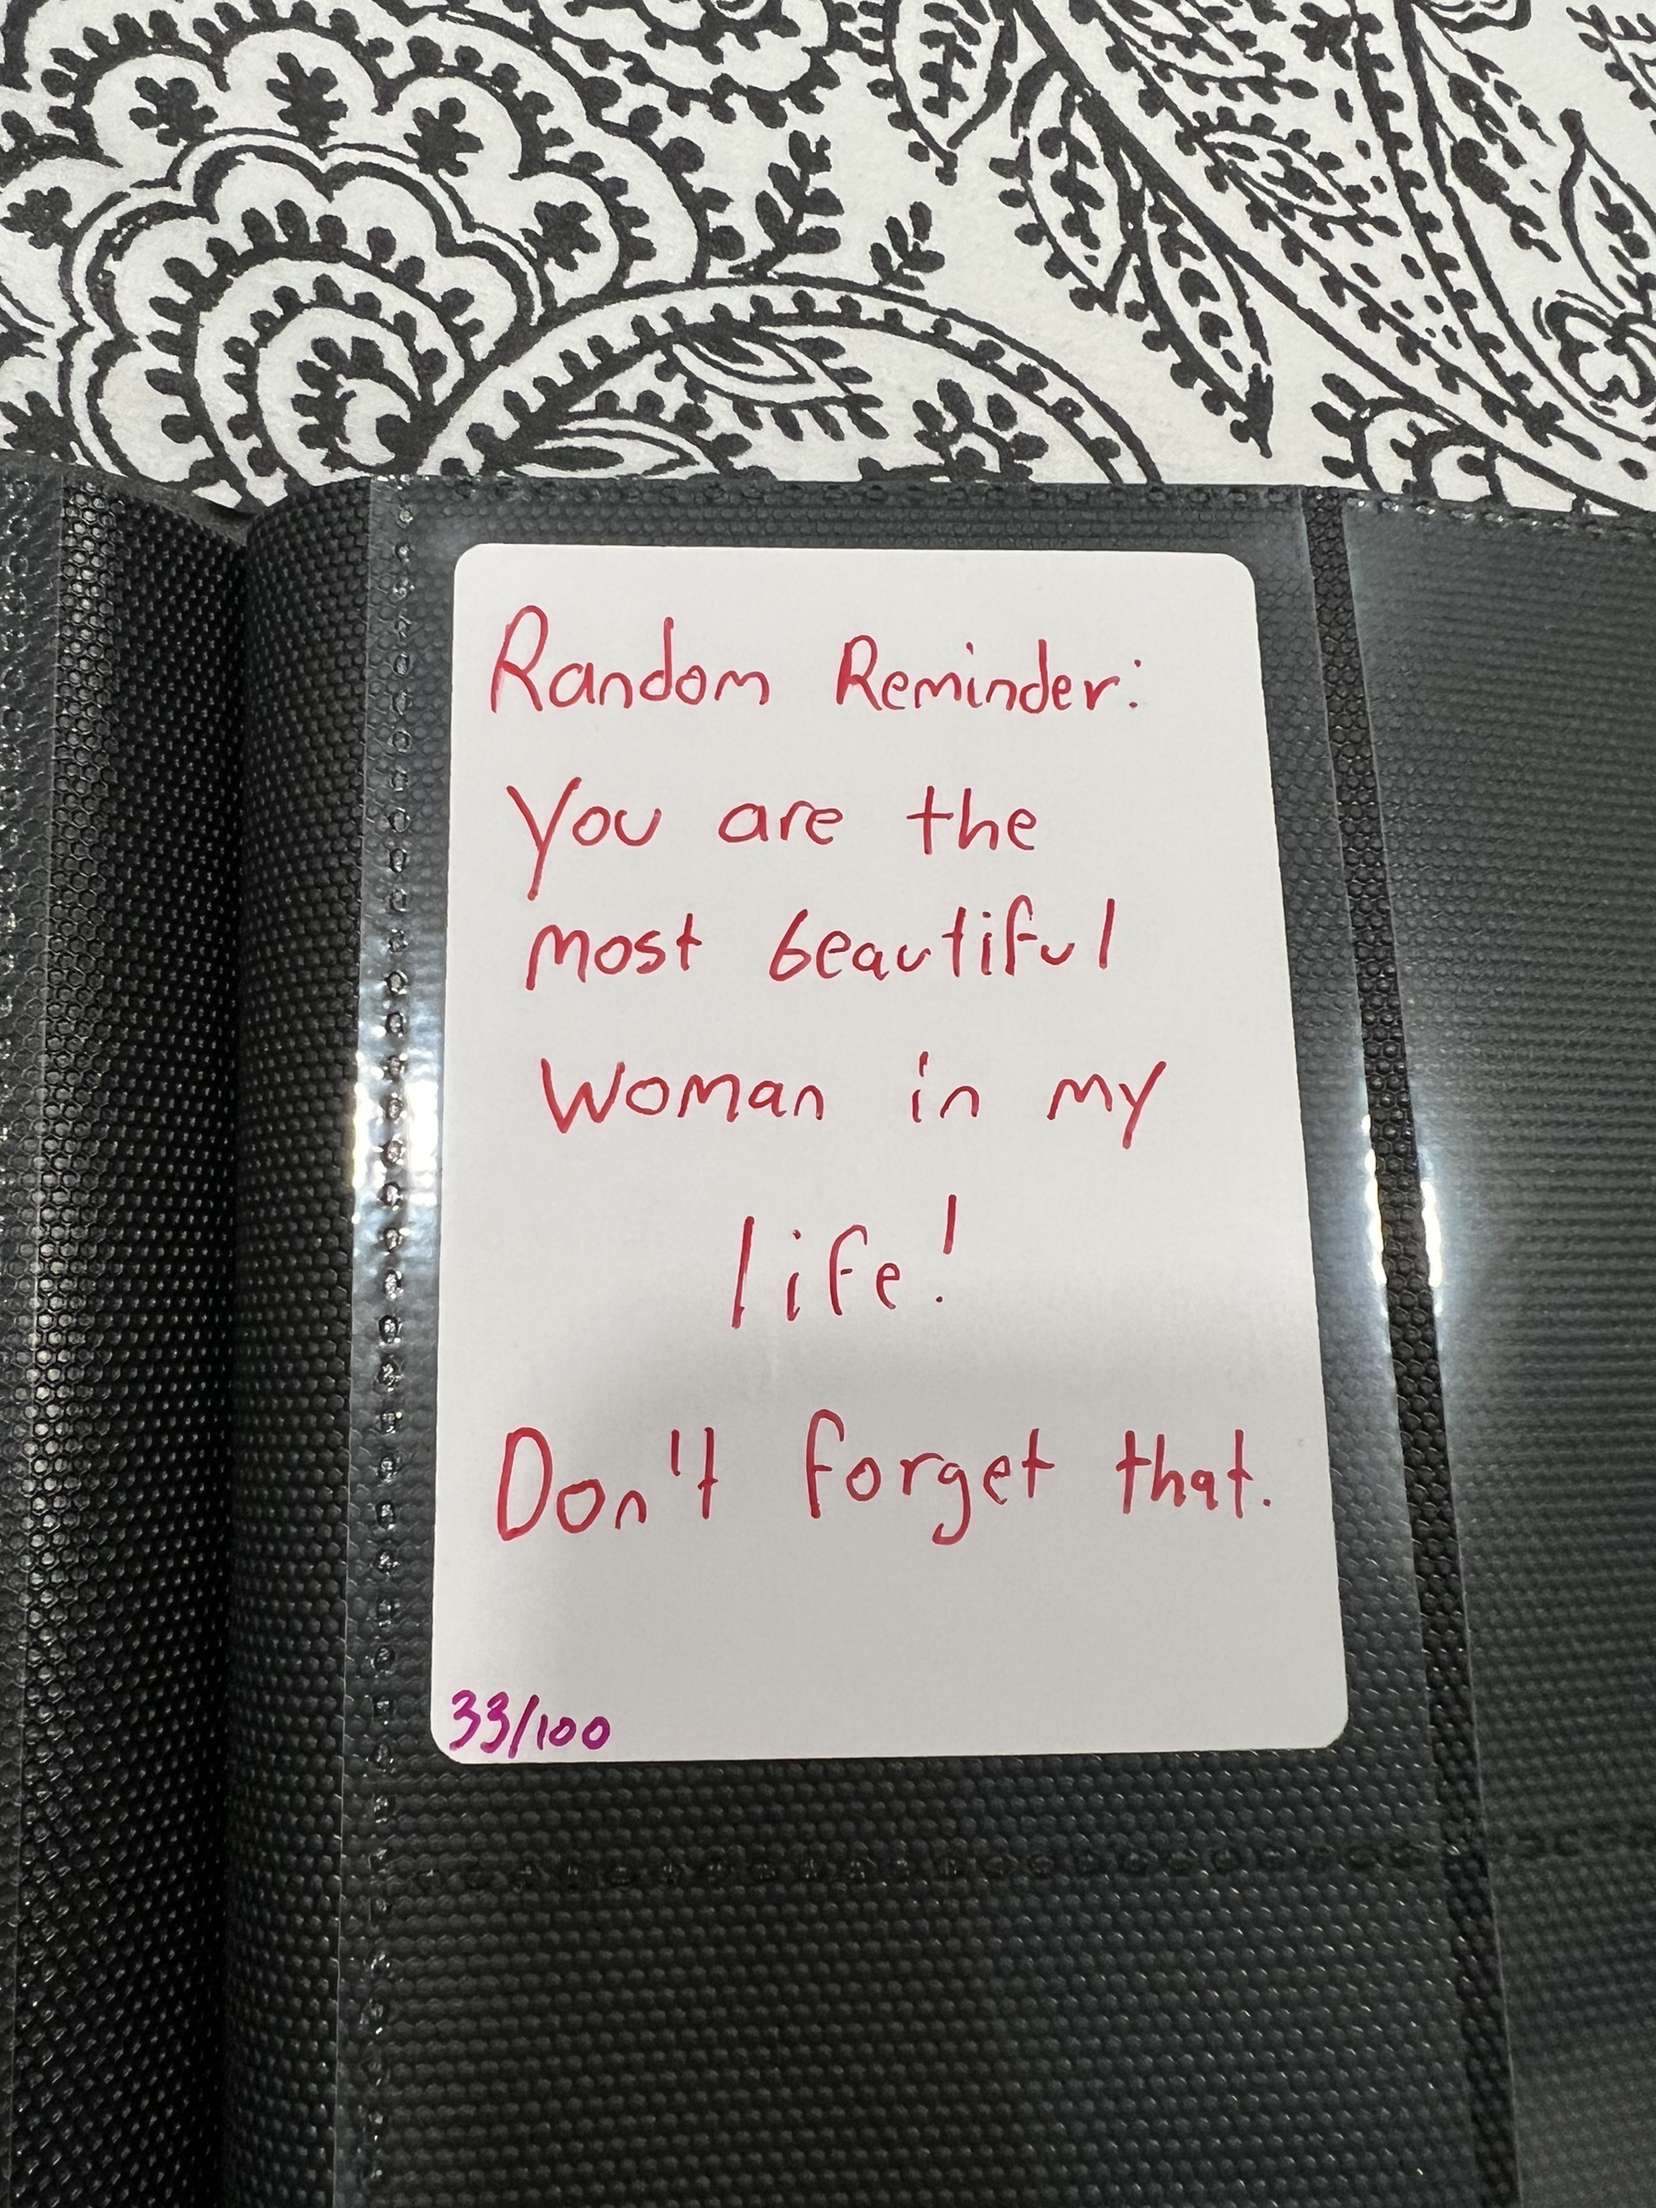 Random Reminder:
You are the
most beautiful
Woman in my
life!
Don't forget that.
33/100